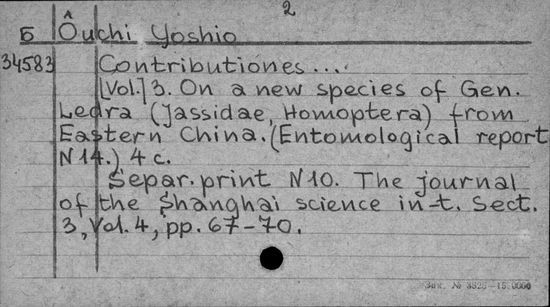 2
Б Ôuchi Yoshio
34583 Contributiones...
[Vol.] 3. On a new species of Gen.
Ledra (Jassidae, Homoptera) from
Eastern China. (Entomological report
N 14.) 4 c.
Separ. print N10. The journal
of the Shanghai science in-t. Sect.
3, Vol. 4, pp. 67-70.
Зак. № 3528-15.0000